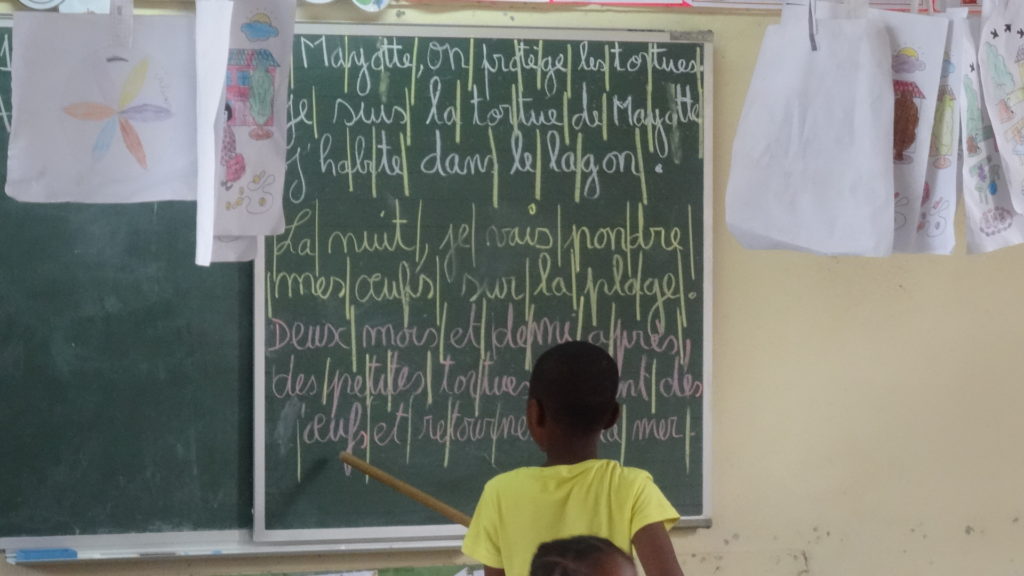 Mayotte, on protège les tortues.
Je suis la tortue de Mayotte
j'habite dans le lagon.
La nuit, je vais pondre
mes œufs sur la plage.
Deux mois et demi après,
des petites tortues nt des
œufs et retourne mer